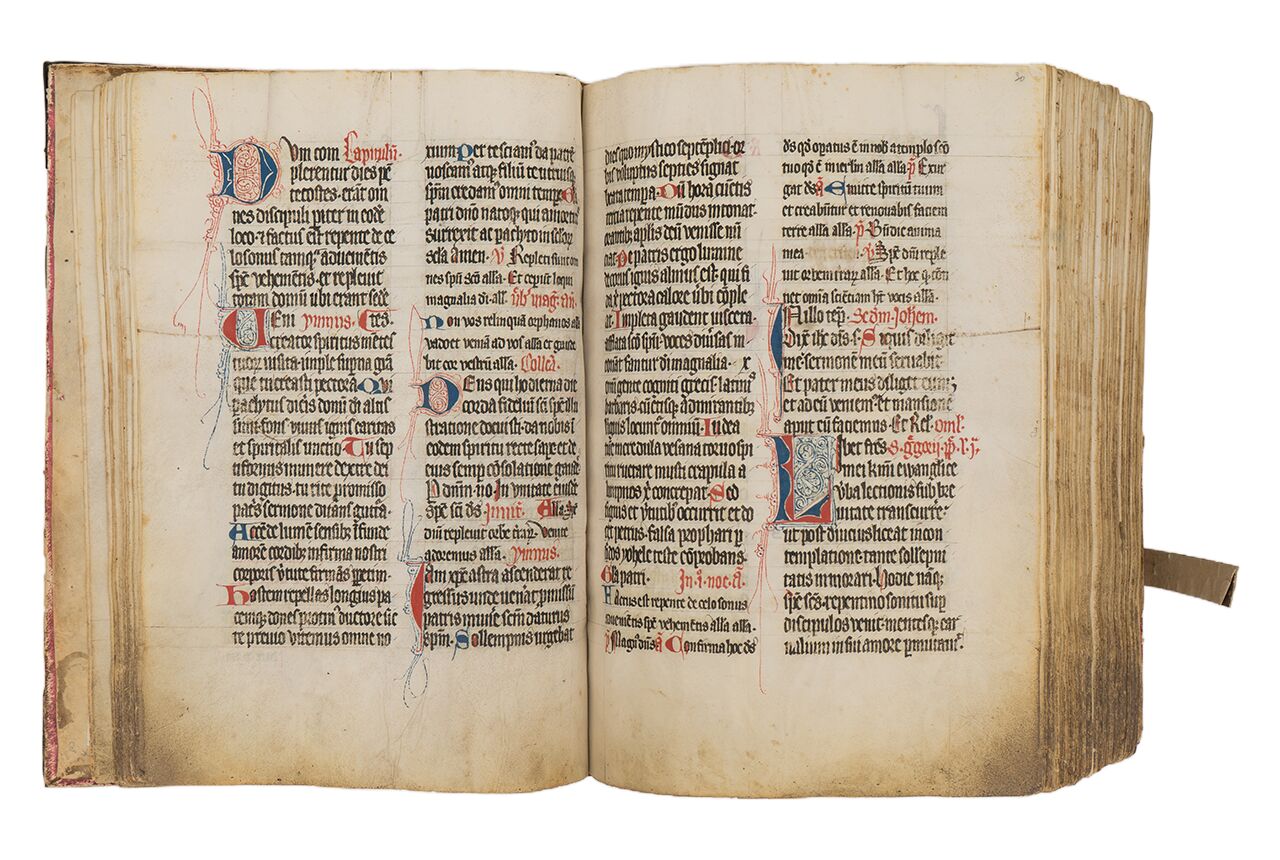 Dum com Capitulum.
plerentur dies pē
tecostes. erāt om
nes discipuli piter in eodē
loco. ⁊ factus est repente de ce
lo sonus tamqᷓ aduenientis
spꝰ vehemētis. et repleuit
totam domū ubi erant sedē
Ueni ymnus. Cres.
creator spiritus mētes
tuorꝝ visita. imple supna grā
que tu creasti pectora Qui
paclytus diceris donū dī altis
simi fons viuus ignis caritas
et spiritalis unctio Tu sep
tiformis munere dextre dei
tu digitus. tu rite promisso
patris sermone ditans guttura.
Accēde lumē sensibꝰ īfunde
amorē cordibꝰ infirma nostri
corporis v̄tute firmās ppetim.
Hostem repellas longius pa
cemqꝫ dones protinꝰ ductore sic
te preuio vitemus omne no
xium. Per te sciamꝰ da patrē
noscamꝰ atqꝫ filiū te utriusqꝫ
spm̄ credamꝰ omni tempe. Gla
patri dn̄o natoqꝫ qui a mortuis
surrexit ac paclyto in sclorꝝ
scla amen. V Repleti sunt om
nes spū sc̄o alla. Et cepunt loqui
magnalia dī. all.
Non vos relinquā orphanos alla
vado et veniā ad vos alla et gaude
bit cor vestrū alla. Collecta.
Deus qui hodierna die
corda fideliū sc̄i spꝰ illu
stratione docuisti. da nobis ī
eodem spiritu recta sape et de
eius semp ꝯsolatione gaude
P dnm̄. no. In vnitate eiusdē
spꝰ sc̄i ds̄. Inuit. Alla. Spꝰ
dn̄i repleuit orbē trāꝝ. Venite
adoremus alla. ymnus.
Iam xp̄c astra ascenderat re
gressus unde uenāt. pmissū
patris munꝰ sc̄m daturus
spm̄. Sollempnis urgebat
30
dies quo mystico septēplici or
bis volutus septies signat
beata tempa. Cū hora cūctis
tertia repente mūdus intonat.
orantibꝰ aplis deū venisse nū
tiat. De patris ergo lumine
decorus ignis almus est. qui fi
da xp̄i pectora calore ūbi cōple
at. Impleta gaudent viscera.
afflata sc̄o spū. voces diūsas in
tonāt fantur dī magnalia. Ex
omī gente cogniti grecis latinis
barbaris cūctisqꝫ admirantibꝫ
linguis locunt̄ omniū. Iudea
tūc incredula vesana toruo spū
ructare musti crapula a
lumpnos x̄i concrepat. Sed
signis et v̄tutibꝰ occurrit et do
cet petrus. falsa prophari p
fidos yohele teste cōprobans.
Gla patri. In .i. noc. A.
Factus est repente de celo sonus
aduenientis spꝰ vehemētis alla alla.
P Magnꝰ dn̄s A Confirma hoc ds̄
ds̄ qd̄ opatus ē in nob̄ a templo sc̄o
tuo qd̄ ē in ierlm alla alla. P Exur
gat ds̄ A Emitte spiritū tuum
et creabūtur et renouabis faciem
terre alla alla. P Bn̄dic anima
mea. V Spꝰ dn̄i reple
uit orbem trāꝝ alla. Et hoc qd̄ cōti
net omnia sciētiam hꝫ vocis alla.
In illo tꝑꝛ̄. Scd̄m Johēm.
Dixit ihc̄ disc̄. s. Siquis diligit
me. sermonē meū seruabit.
Et pater meus diliget eum.
et ad eū veniemꝰ. et mansionē
aput eū faciemus. Et Rel. Oml.
Libet frēs s. gregorij. pp. l. j.
mei kmī ewanglice
v̄ba lectionis sub bre
uitate transcurre.
ut post diucius liceat in con
templatione tante sollempni
tatis immorari. Hodie nāqꝫ
spꝰ sc̄s. repentino sonitu sup
discipulos venit. mentesqꝫ car
nalium in sui amore pmutauit.